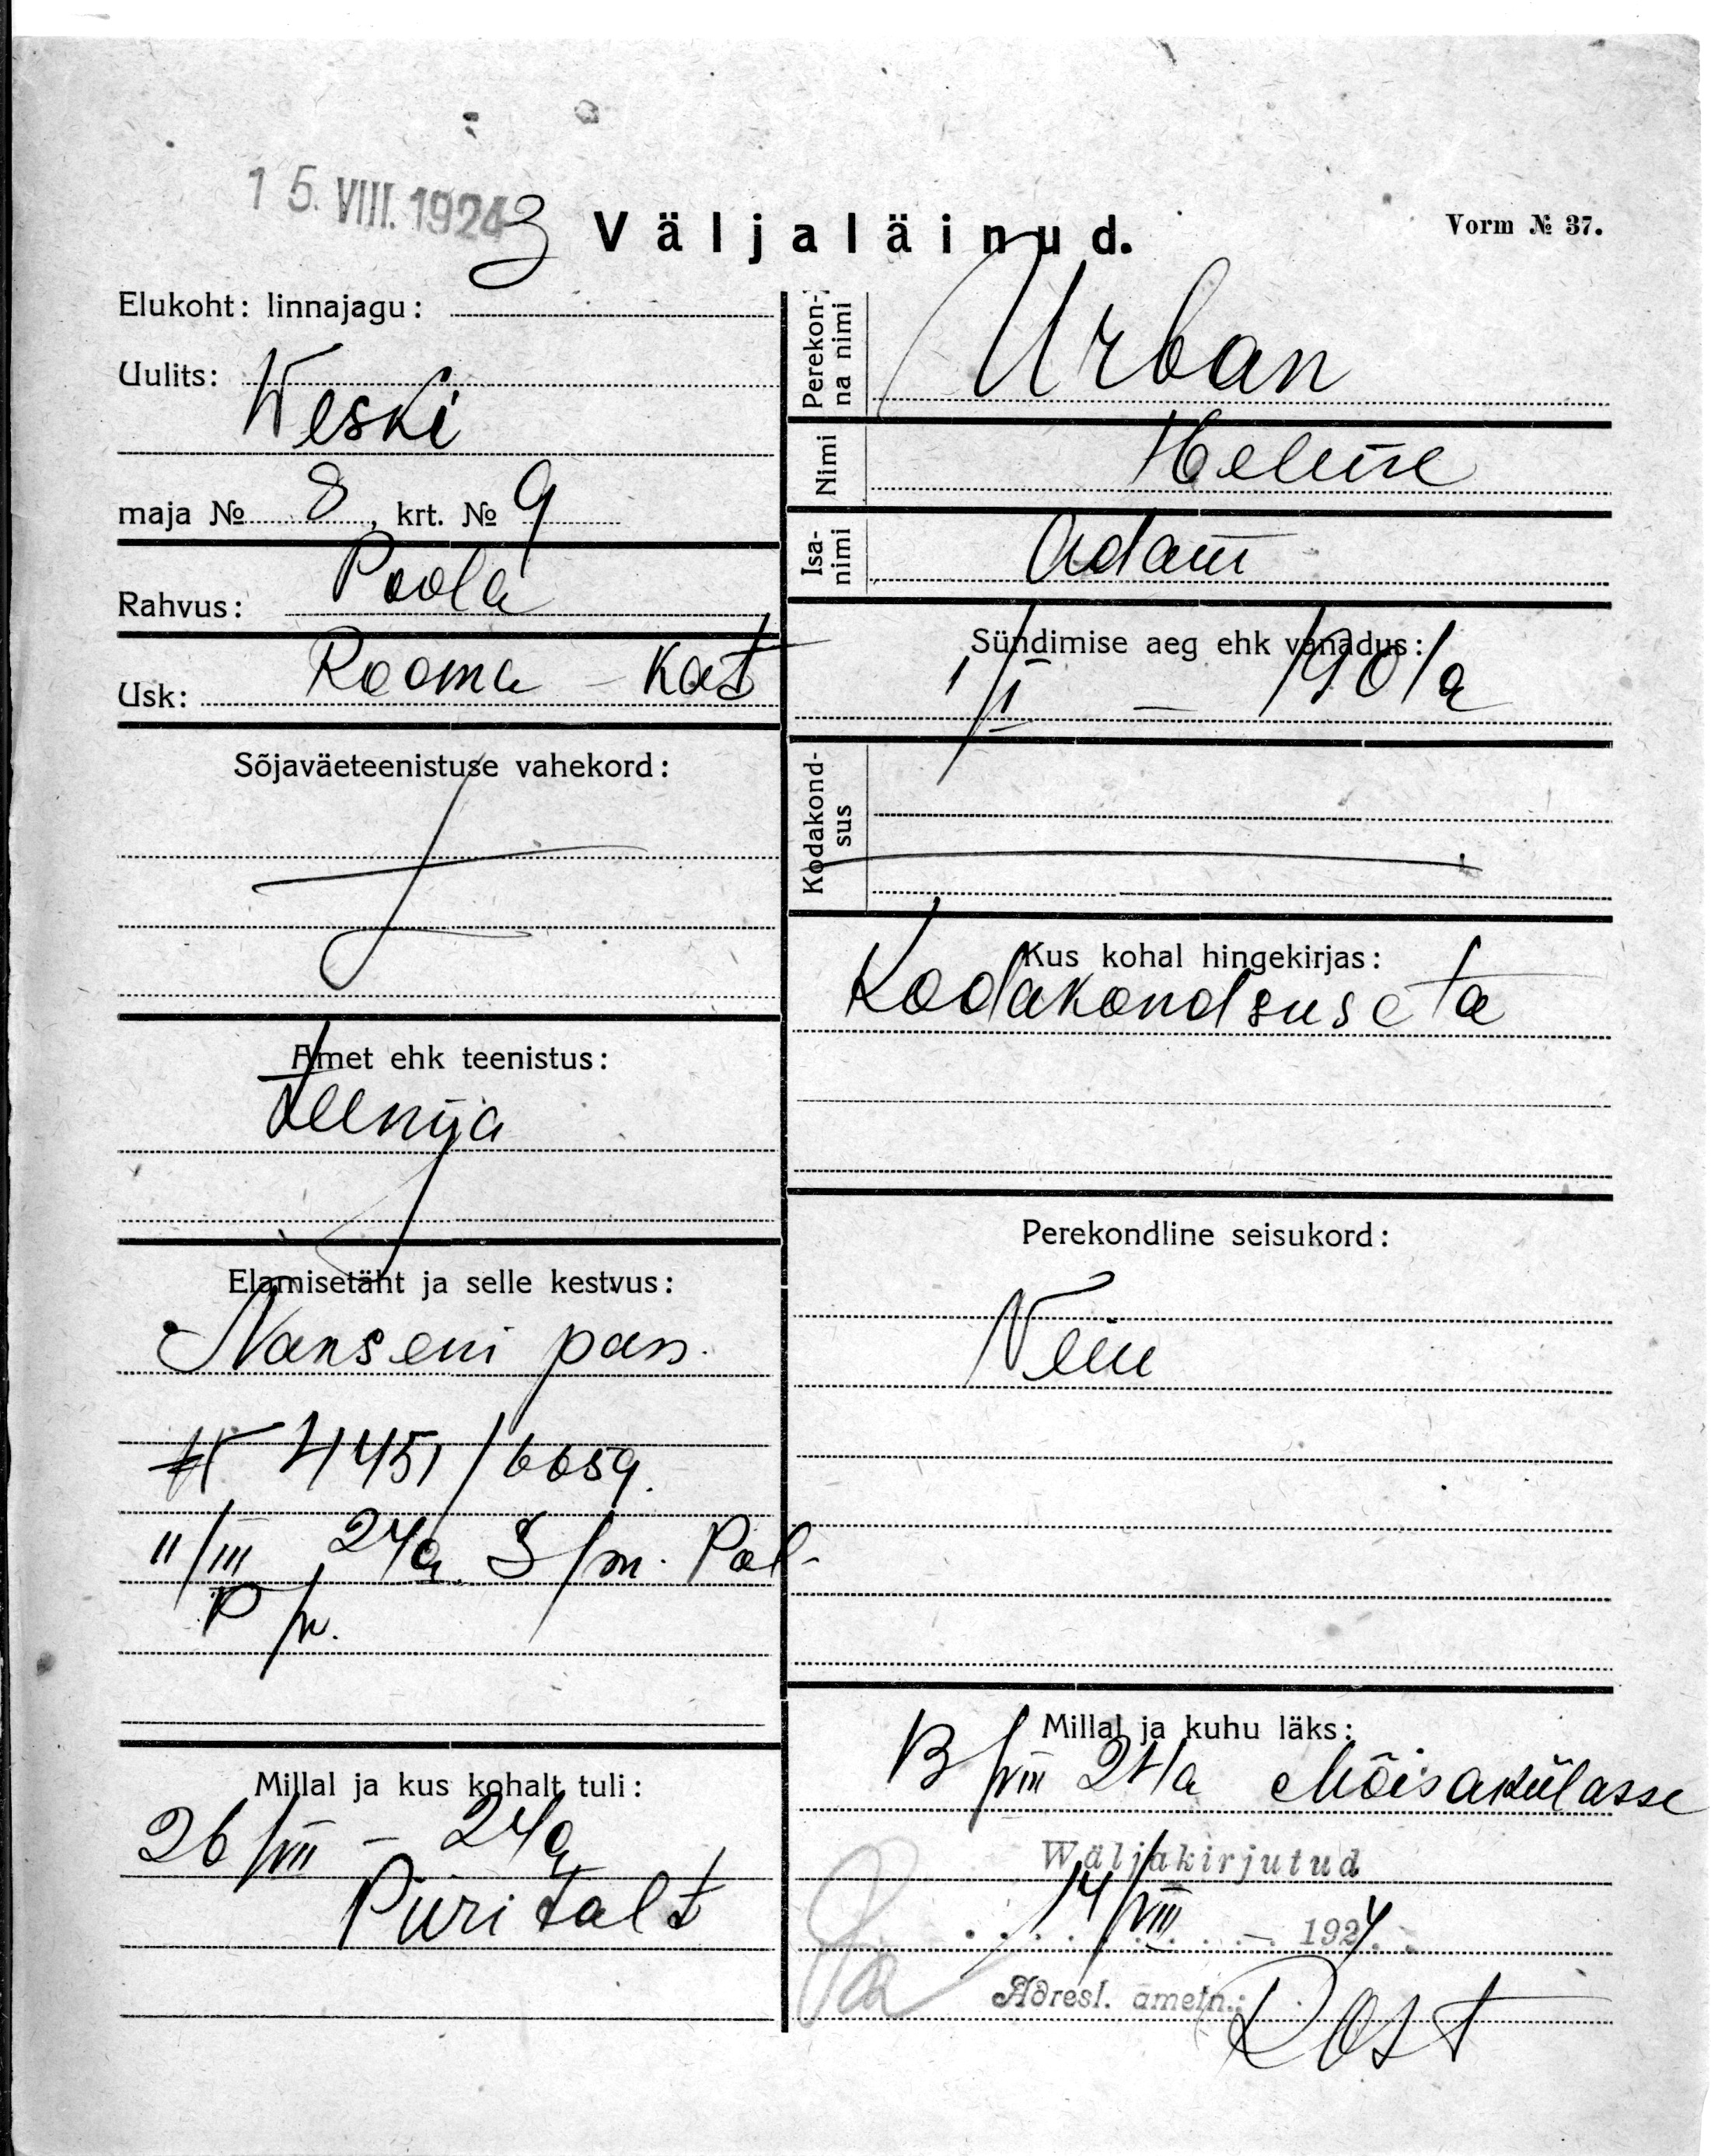 15. VIII. 1924
3
Väljaläinud.
Vorm № 37.
Elukoht: linnajagu:
Uulits: Weski
maja № 8, krt. № 9
Rahvus: Poola
Usk: Rooma - Kat
Sõjaväeteenistuse vahekord:
Amet ehk teenistus:
Teenija
Elamisetäht ja selle kestvus:
Nanseni pass.
№ 4451/6659.
11/III 24a. S/m. Pol-
P/w.
Millal ja kus kohalt tuli:
26/VII - 24a
Piiri talt
Perekon-
na nimi
Urban
Nimi
Helene
Isa-
nimi
Adam
Sündimise aeg ehk vanadus:
1/I - 1901a
Kodakond-
sus
Kus kohal hingekirjas:
Kodakondsuseta
Perekondline seisukord:
Neiu
Millal ja kuhu läks:
13/VIII 24a Mõisakülasse
Wäljakirjutud
14/VIII - 1924.
Adresl. ametn.:
Rost